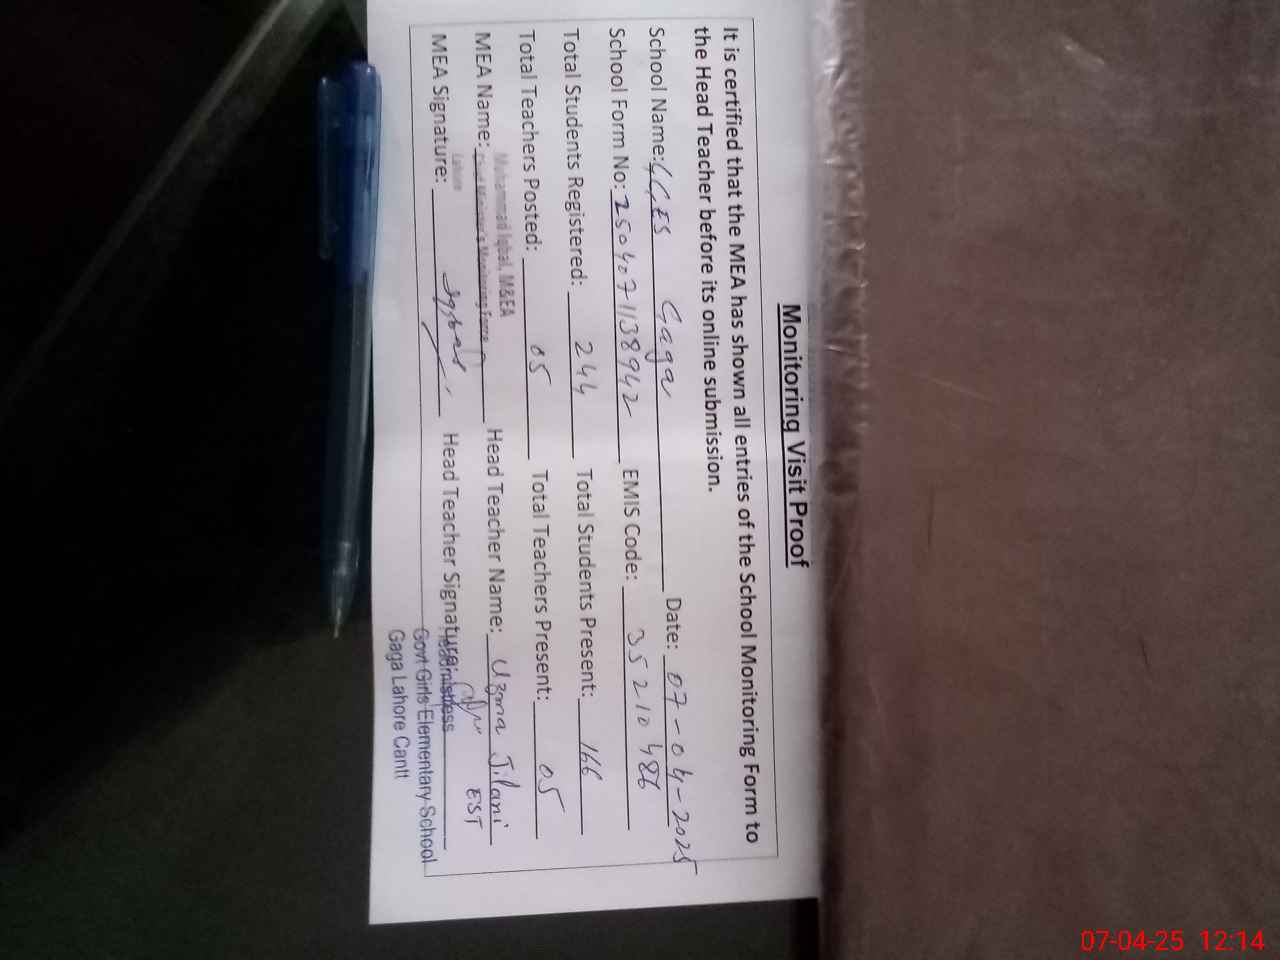 Monitoring Visit Proof
It is certified that the MEA has shown all entries of the School Monitoring Form to
the Head Teacher before its online submission.
School Name: GGES Gaga Date: 07-04-2025
School Form No: 2504071138942 EMIS Code: 35210486
Total Students Registered: 244 Total Students Present: 166
Total Teachers Posted: 05 Total Teachers Present: 05
Muhammad Iqbal, M&EA
MEA Name: Chief Minister's Monitoring Force Head Teacher Name: Uzma Jilani
Lahore
EST
MEA Signature: Iqbal Head Teacher Signature:
Headmistress
Govt Girls Elementary School
Gaga Lahore Cantt
07-04-25 12:14